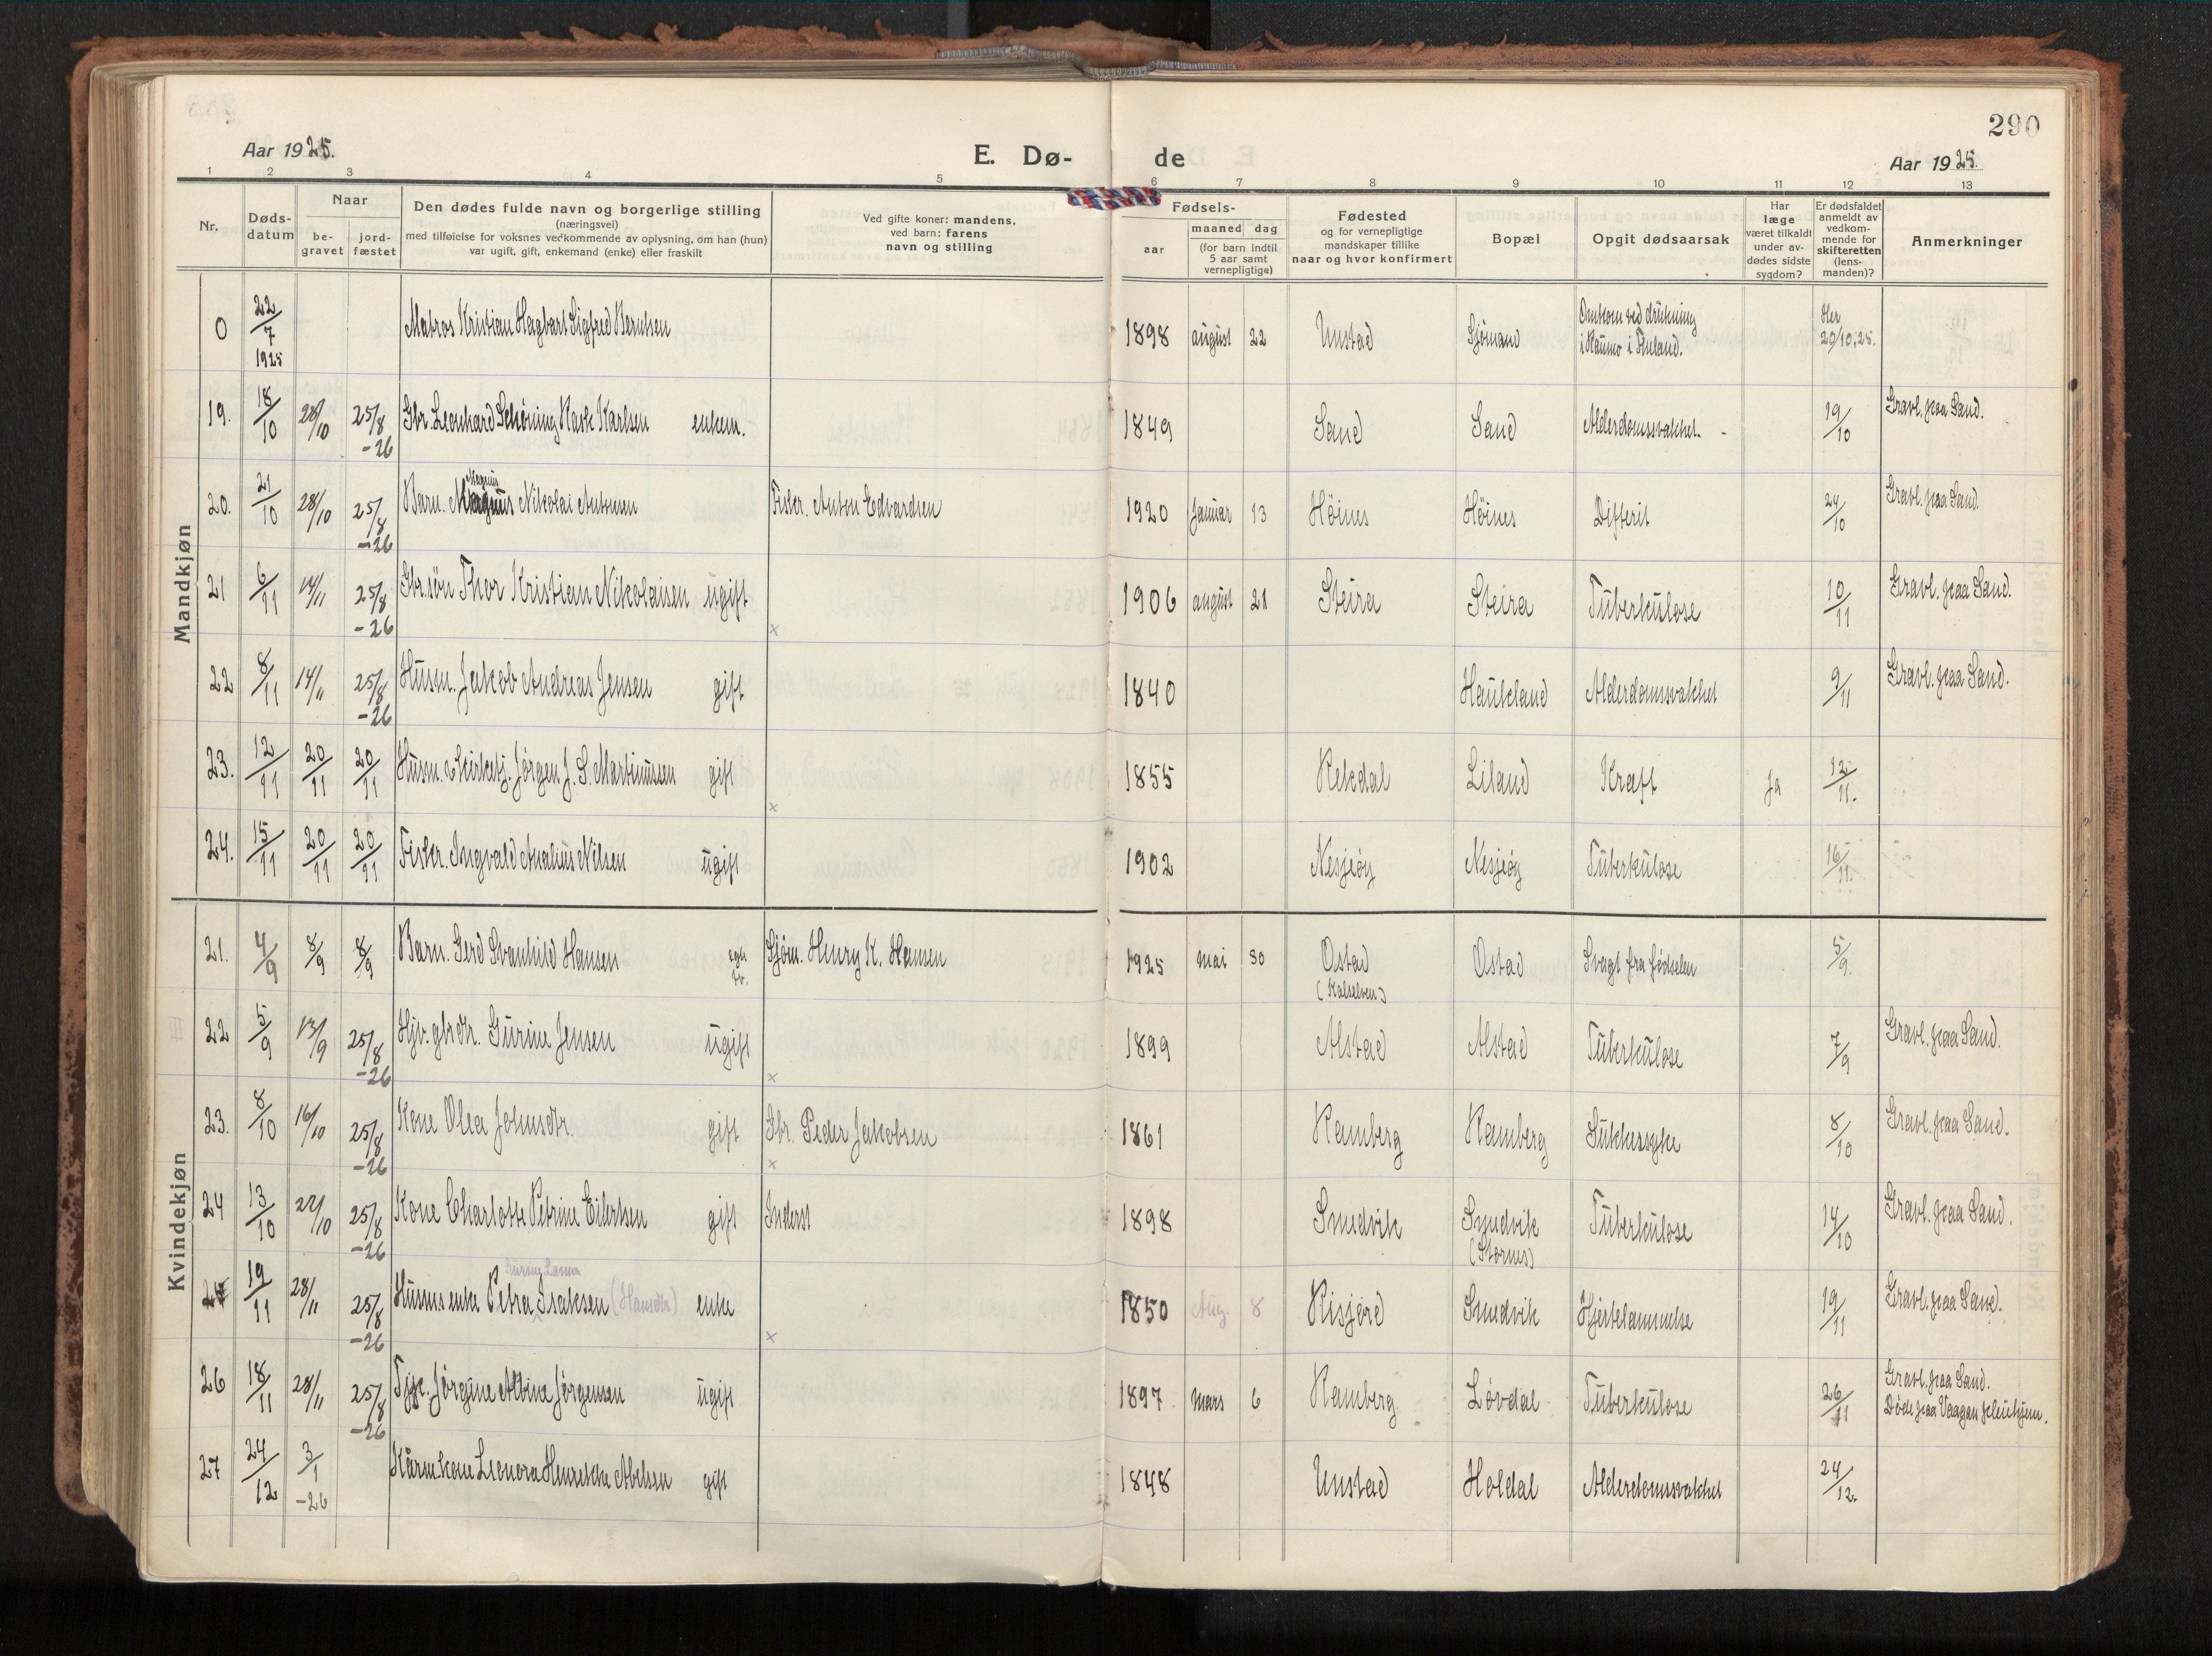 290
Aar 1925.
E. Dø-
de
Aar 1925.
1 2 3 4 5 6 7 8 9 10 11 12 13
Nr.
Døds-
datum
Naar
be-
gravet
jord-
fæstet
Den dødes fulde navn og borgerlige stilling
(næringsvei)
med tilføielse for voksnes vedkommende av oplysning, om han (hun)
var ugift, gift, enkemand (enke) eller fraskilt
Ved gifte koner: mandens,
ved barn: farens
navn og stilling
Fødsels-
aar
maaned dag
(for barn indtil
5 aar samt
vernepligtige)
Fødested
og for vernepligtige
mandskaper tillike
naar og hvor konfirmert
Bopæl
Opgit dødsaarsak
Har
læge
været tilkaldt
under av-
dødes sidste
sygdom?
Er dødsfaldet
anmeldt av
vedkom-
mende for
skifteretten
(lens-
manden)?
Anmerkninger
Mandkjøn
0 22/7 1925 Matros Kristian Hagbart Sigfred Berntsen 1898 august 22 Unstad Sjømand Omkom ved drukning
i Raumo i Finland. 20/10.25.
19. 18/10 28/10 25/8 -26 Gbr. Leonhard Schöning Karlsen enkem. 1849 Sand Sand Alderdomssvakhet 19/10 Gravl. paa Sand.
20. 21/10 28/10 25/8 -26 Barn. Magnus Nikolai Antonsen Fisker. Anton Edvardsen 1920 Januar 13 Höines Höines Difterit 24/10 Gravl. paa Sand.
21 6/11 14/11 25/8 -26 Gbr.søn Thor Kristian Nikolaisen ugift x 1906 august 21 Steira Steira Tuberkulose 10/11 Gravl. paa Sand.
22 8/11 14/11 25/8 -26 Husm. Jakob Andreas Jensen gift 1840 Haukland Alderdomssvakhet 9/11 Gravl. paa Sand.
23. 12/11 20/11 20/11 Husm. & Kirketj. Jørgen J. S. Martinussen gift x 1855 Rekdal Liland Kræft Ja 12/11.
24. 15/11 20/11 20/11 Fisker. Ingvald Analius Nilsen ugift 1902 Nesjeöy Nesjeöy Tuberkulose 16/11.
Kvindekjøn
21. 4/9 8/9 8/9 Barn. Gerd Svanhild Hansen Sjøm. Henry K. Hansen 1925 mai 30 Ostad Ostad Svagt fra fødselen 5/9.
22 5/9 13/9 25/8 -26 Hjv. gbrdtr. Gurine Jensen ugift x 1899 Alstad Alstad Tuberkulose 7/9 Gravl. paa Sand.
23. 8/10 16/10 25/8 -26 Kone Olea Johnsdtr. gift Gbr. Peder Jakobsen x 1861 Ramberg Ramberg Sukkersyke 8/10 Gravl. paa Sand.
24 13/10 22/10 25/8 -26 Kone Charlotte Petrine Eilertsen gift Inderst 1898 Smedvik Smedvik
(Stornes) Tuberkulose 14/10 Gravl. paa Sand.
19/11 28/11 25/8 -26 Husms enke Petra Isaksen (Hansdtr) enke x 1850 Aug. 8 Risjord Smedvik Hjertelammelse 19/11 Gravl. paa Sand.
26 18/11 28/11 25/8 -26 Tjp. Jörgine Albine Jörgensen ugift 1897 mars 6 Ramberg Løvdal Tuberkulose 26/11 Gravl. paa Sand.
Døde paa Vaagan pleiehjem.
27 24/12 3/1 -26 Kårmkone Leonora Henrikke Abelsen gift 1848 Unstad Holdal Alderdomssvakhet 24/12.